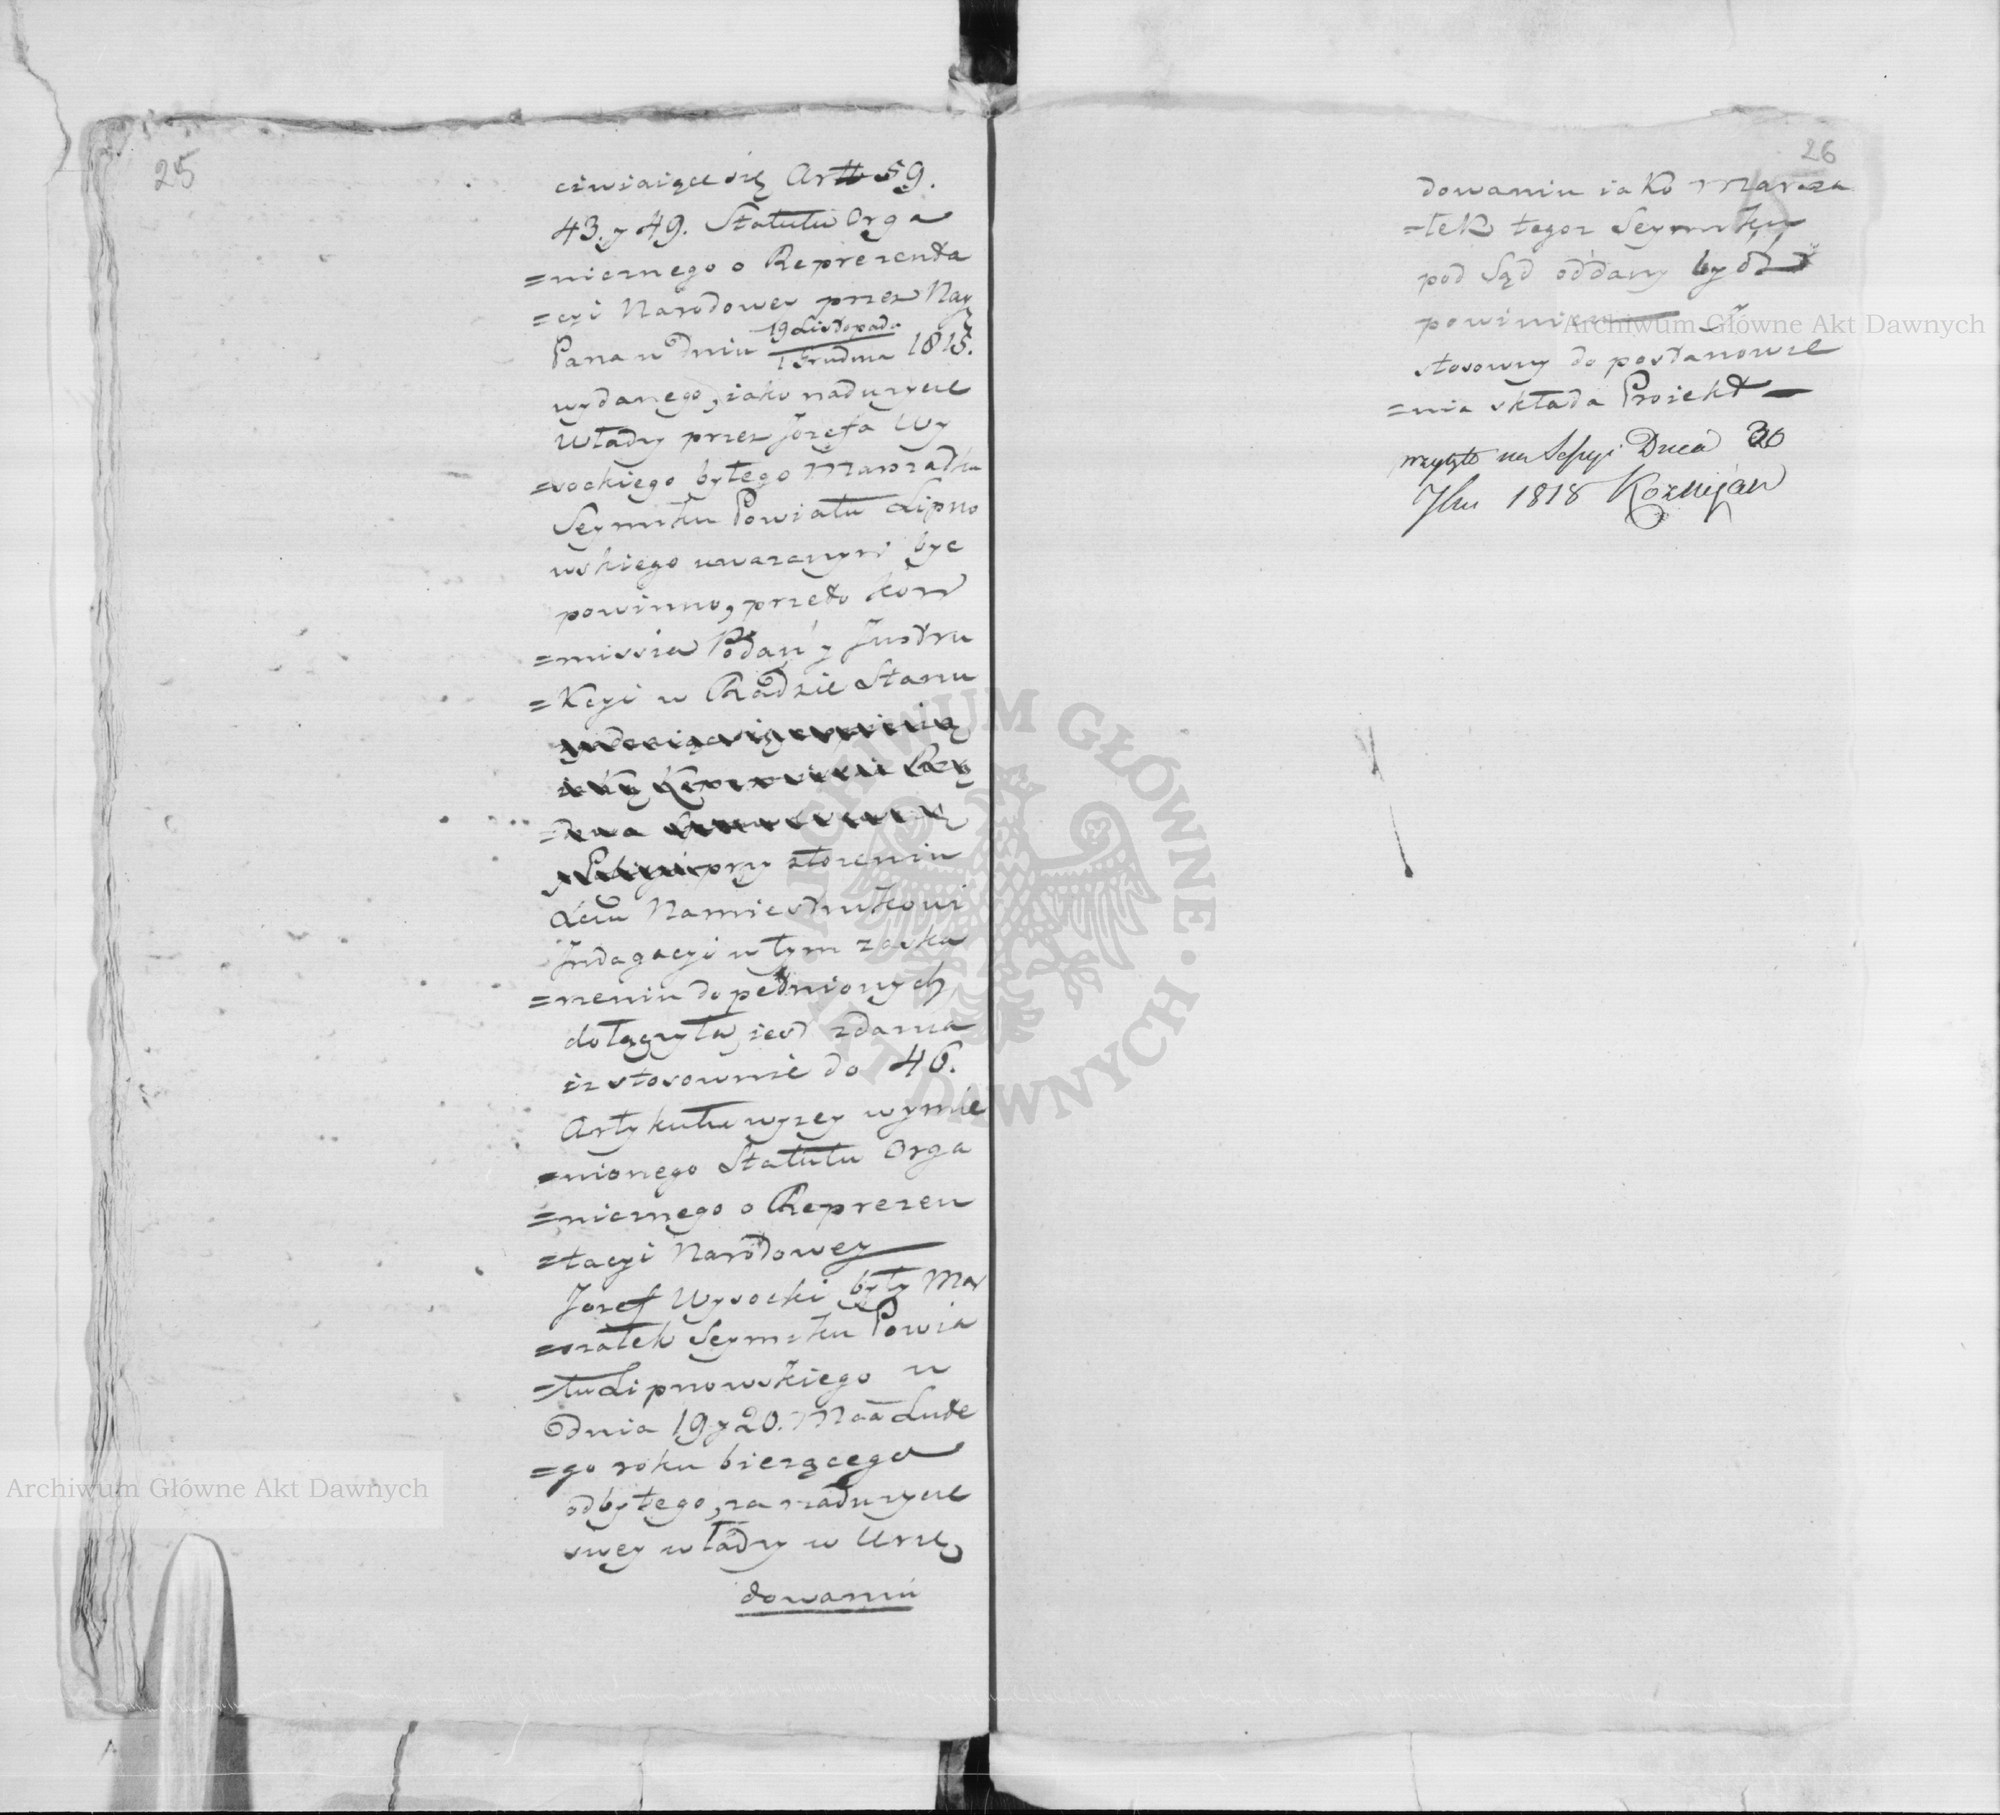 25
ciwiaiące się Artt 59.
43. y 49. Statutu Orga
=nicznego o Reprezenta
=cyi Narodowey przez Nay
Pana w Dniu 19 Listopada / 1 Grudnia 1815.
wydanego, iako nadużycie
Władzy przez Józefa Wy
=sockiego byłego Marszałka
Seymiku Powiatu Lipno
wskiego uważanym być
powinno, przeto Kom
=missia Podań y Instru
=kcyi w Radzie Stanu
przy złożeniu
Xciu Namiestnikowi
Indagacyi w tym zaska
=rżeniu dopełnionych
dołączyła, iest zdania
iż stosownie do 46.
Artykułu wyżey wymie
=nionego Statutu Orga
=nicznego o Reprezen
=tacyi Narodowey
Jozef Wysocki były Mar
=szałek Seymiku Powia
=tu Lipnowskiego w
Dnia 19 y 20. Mca Lute
=go roku bieżącego
odbytego, za nadużycie
swey władzy w Urzę
dowaniu
26
dowaniu iako Marsza
=łek tegoż Seymiku
pod Sąd oddany bydź
powinien
stosowny do postanowie
=nia składa Proiekt
przyięto na Sessyi Dnia 30
1818 Kozmian
ARCHIWUM GŁÓWNE AKT DAWNYCH
Archiwum Główne Akt Dawnych
Archiwum Główne Akt Dawnych